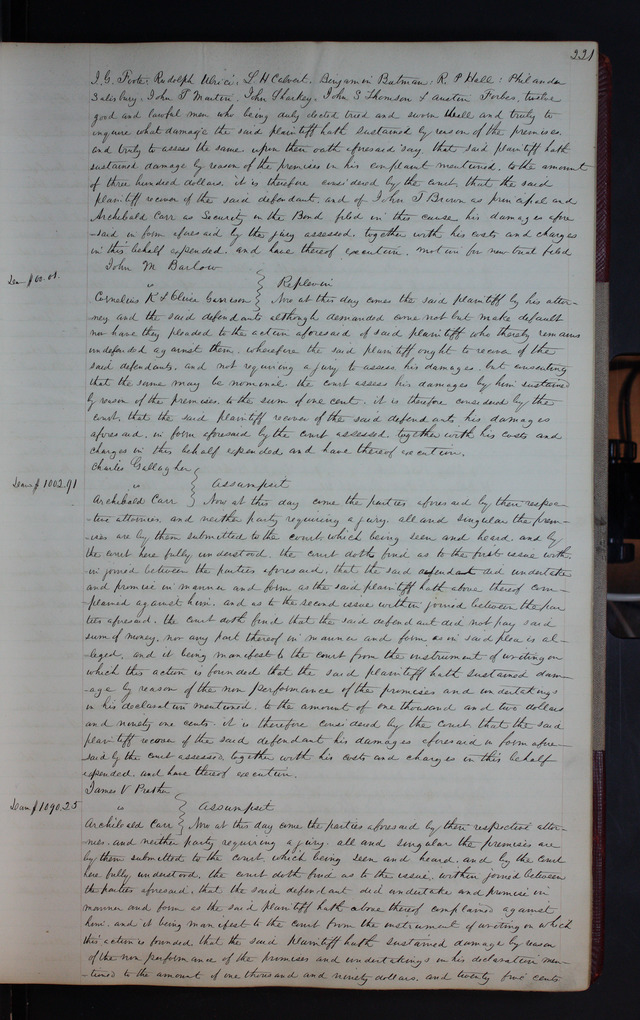 221
I. G. Foote, Rudolph Ulrici, L H Calvert, Benjamin Bateman, R. P Hall, Philander
Salisbury, John T Martin, John Sharkey, John S Thomson & Austin Forbes, twelve
good and lawful men who being duly elected tried and sworn well and truly to
inquire what damage the said plaintiff hath sustained by reason of the premises,
and truly to assess the same upon their oath aforesaid say, that said plaintiff hath
sustained damage by reason of the premises in his complaint mentioned, to the amount
of three hundred dollars. it is therefore considered by the court, that the said
plaintiff recover of the said defendant, and of John T Brown as principal and
Archibald Carr as Security in the Bond filed in this cause his damages afore
-said in form aforesaid by the jury assessed, together with his costs and charges
in this behalf expended, and have thereof execution. motion for new trial filed
John M Barlow
vs Replevin
Dam $00.01.
Cornelius K & Oliver Garrison Now at this day comes the said plaintiff by his attor-
ney and the said defendants although demanded come not but make default
nor have they pleaded to the action aforesaid of said plaintiff who thereby remains
undefended against them. wherefore the said plaintiff ought to recover of the
said defendants, and not requiring a jury to assess his damages, but consenting
that the same may be nominal the court assess his damages by him sustained
by reason of the premises, to the sum of one cent. it is therefore considered by the
court, that the said plaintiff recover of the said defendants his damages
aforesaid in form aforesaid by the court assessed, together with his costs and
charges in this behalf expended and have thereof execution.
Charles Gallagher
Dam $1002.91
vs Assumpsit
Archibald Carr Now at this day come the parties aforesaid by their respec-
tive attornies, and neither party requiring a jury, all and singular the prem-
ises are by them submitted to the court which being seen and heard and by
the court here fully understood, the court doth find as to the first issue with-
in joined between the parties aforesaid, that the said defendant did undertake
and promise in manner and form as the said plaintiff hath above thereof com-
plained against him. and as to the second issue within joined between the par
ties aforesaid, the court doth find that the said defendant did not pay said
sum of money, nor any part thereof in manner and form as in said plea is al-
leged, and it being manifest to the court from the instrument of writing on
which this action is founded that the said plaintiff hath sustained dam-
age by reason of the non performance of the promises and undertakings
in his declaration mentioned, to the amount of one thousand and two dollars
and ninety one cents. it is therefore considered by the Court that the said
plaintiff recover of the said defendant his damages aforesaid in form afore-
said by the court assessed together with his costs and charges in this behalf
expended and have thereof execution.
James V Prather
Dam $1090.25
vs Assumpsit
Archibald Carr Now at this day come the parties aforesaid by their respective attor-
nies, and neither party requiring a jury, all and singular the premises are
by them submitted to the court, which being seen and heard, and by the court
here fully understood, the court doth find as to the issue within joined between
the parties aforesaid, that the said defendant did undertake and promise in
manner and form as the said plaintiff hath above thereof complained against
him. and it being manifest to the court from the instrument of writing on which
this action is founded, that the said plaintiff hath sustained damage by reason
of the non performance of the promises and undertakings in his declaration men-
tioned to the amount of one thousand and ninety dollars, and twenty five cents